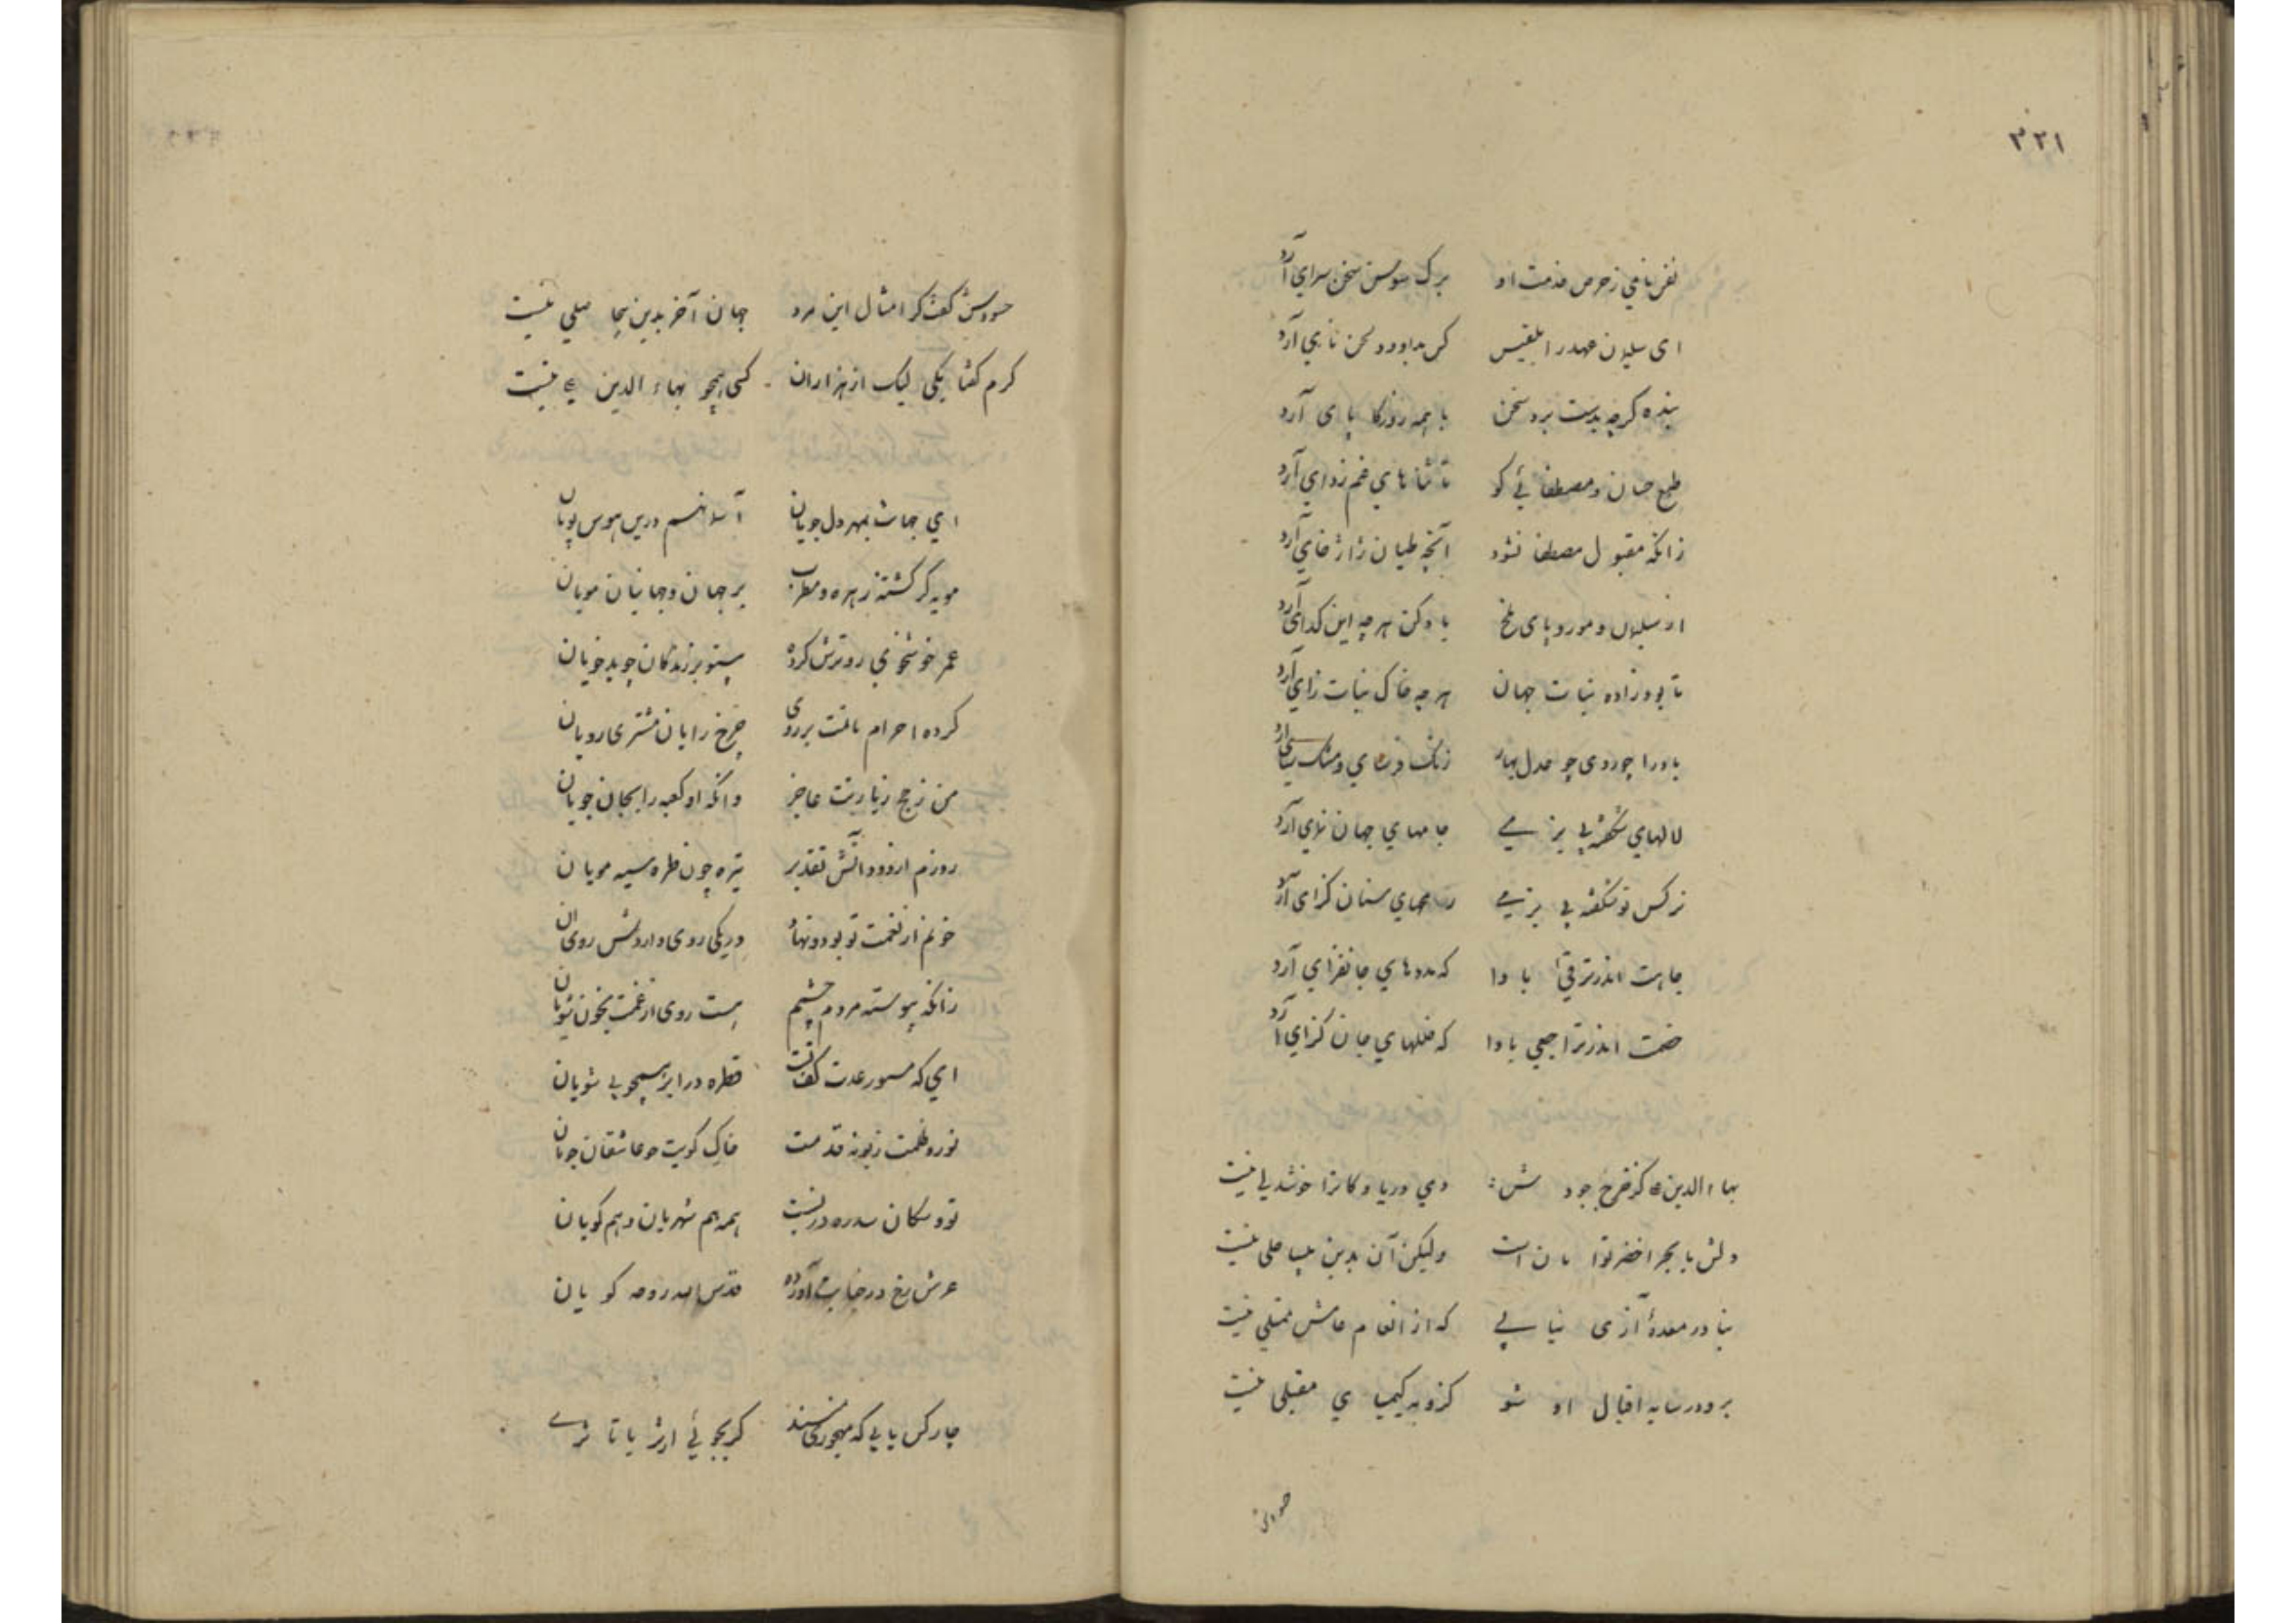 ۳۲۱
نفس نامی ز حرص خدمت او برک سوسن سخن سرای آرد
ای سلیمان عهد را بلقیس کس بداود لحن نای آرد
بنده کرچه بدست برد سخن با همه روزکار پای آرد
طبع حسان و مصطفائی کو تا ثناهای غم زدای آرد
زانکه مقبول مصطفا نشود آنچه طیان ژاژ خای آرد
از سلیمان و مور و پای ملخ یاد کن هر چه این کدای آرد
تا بود زاده نبات جهان هر چه خاک نبات زای آرد
باد را چو دی چو عدل بهار
لالهای شکفته بی بزمی جامهای جهان نمای آرد
نرکس نو شکفته بی رزمی رمحهای سنان کزای آرد
جاهت اندر ترقیی بادا که مددهای جانفزای آرد
خصمت اندر تراجعی بادا که خللهای جان کزای آرد
بهاء الدین کز خرج جودش دمی دریا و کانرا خوشدلی نیست
دلش با بحر اخضر توامانست ولیکن آن بدین بی ساحلی نیست
بنا در معده آزی نیابی که از انعام عامش ممتلی نیست
برو در سایه اقبال او شو کزو به کیمیای مقبلی نیست
حسودش
حسودش کفت کر امثال این مرد جهان آخر بدین بیحاصلی نیست
کرم کفتا یکی لیک از هزاران کسی همچو بهاء الدین نیست
ای جهانت بمهر دل جویان آسمانهم درین هوس پویان
مویه کر کشته زهره و مطرب بر جهان و جهانیان مویان
عمر خوشخوی رو ترش کرده بیتو بر زندکان چو بدخویان
کرده احرام بر روی چرخ رایان مشتری رویان
من ز حج زیارتت عاجز وانکه او کعبه را بجان جویان
روزم از دود آتش تقدیر تیره چون طره سیه مویان
خونم از نعمت تو بود و نهاد در یکی روی داروئش رویان
زانکه پیوسته مردم چشم هست روی از غمت بخون شویان
ای که مسور عدت کفنت قطره در ابر همچو بی شویان
نور و ظلمت ز بوی قدمت خاک کویت چو عاشقان جویان
تو و سکان سدره در نسبت همه هم شهریان و هم کویان
عرش رخ در جنابت آورده قدس الله روحه کویان
چار کس یابی که میجوری کر بجوئی از ثریا تا ثری